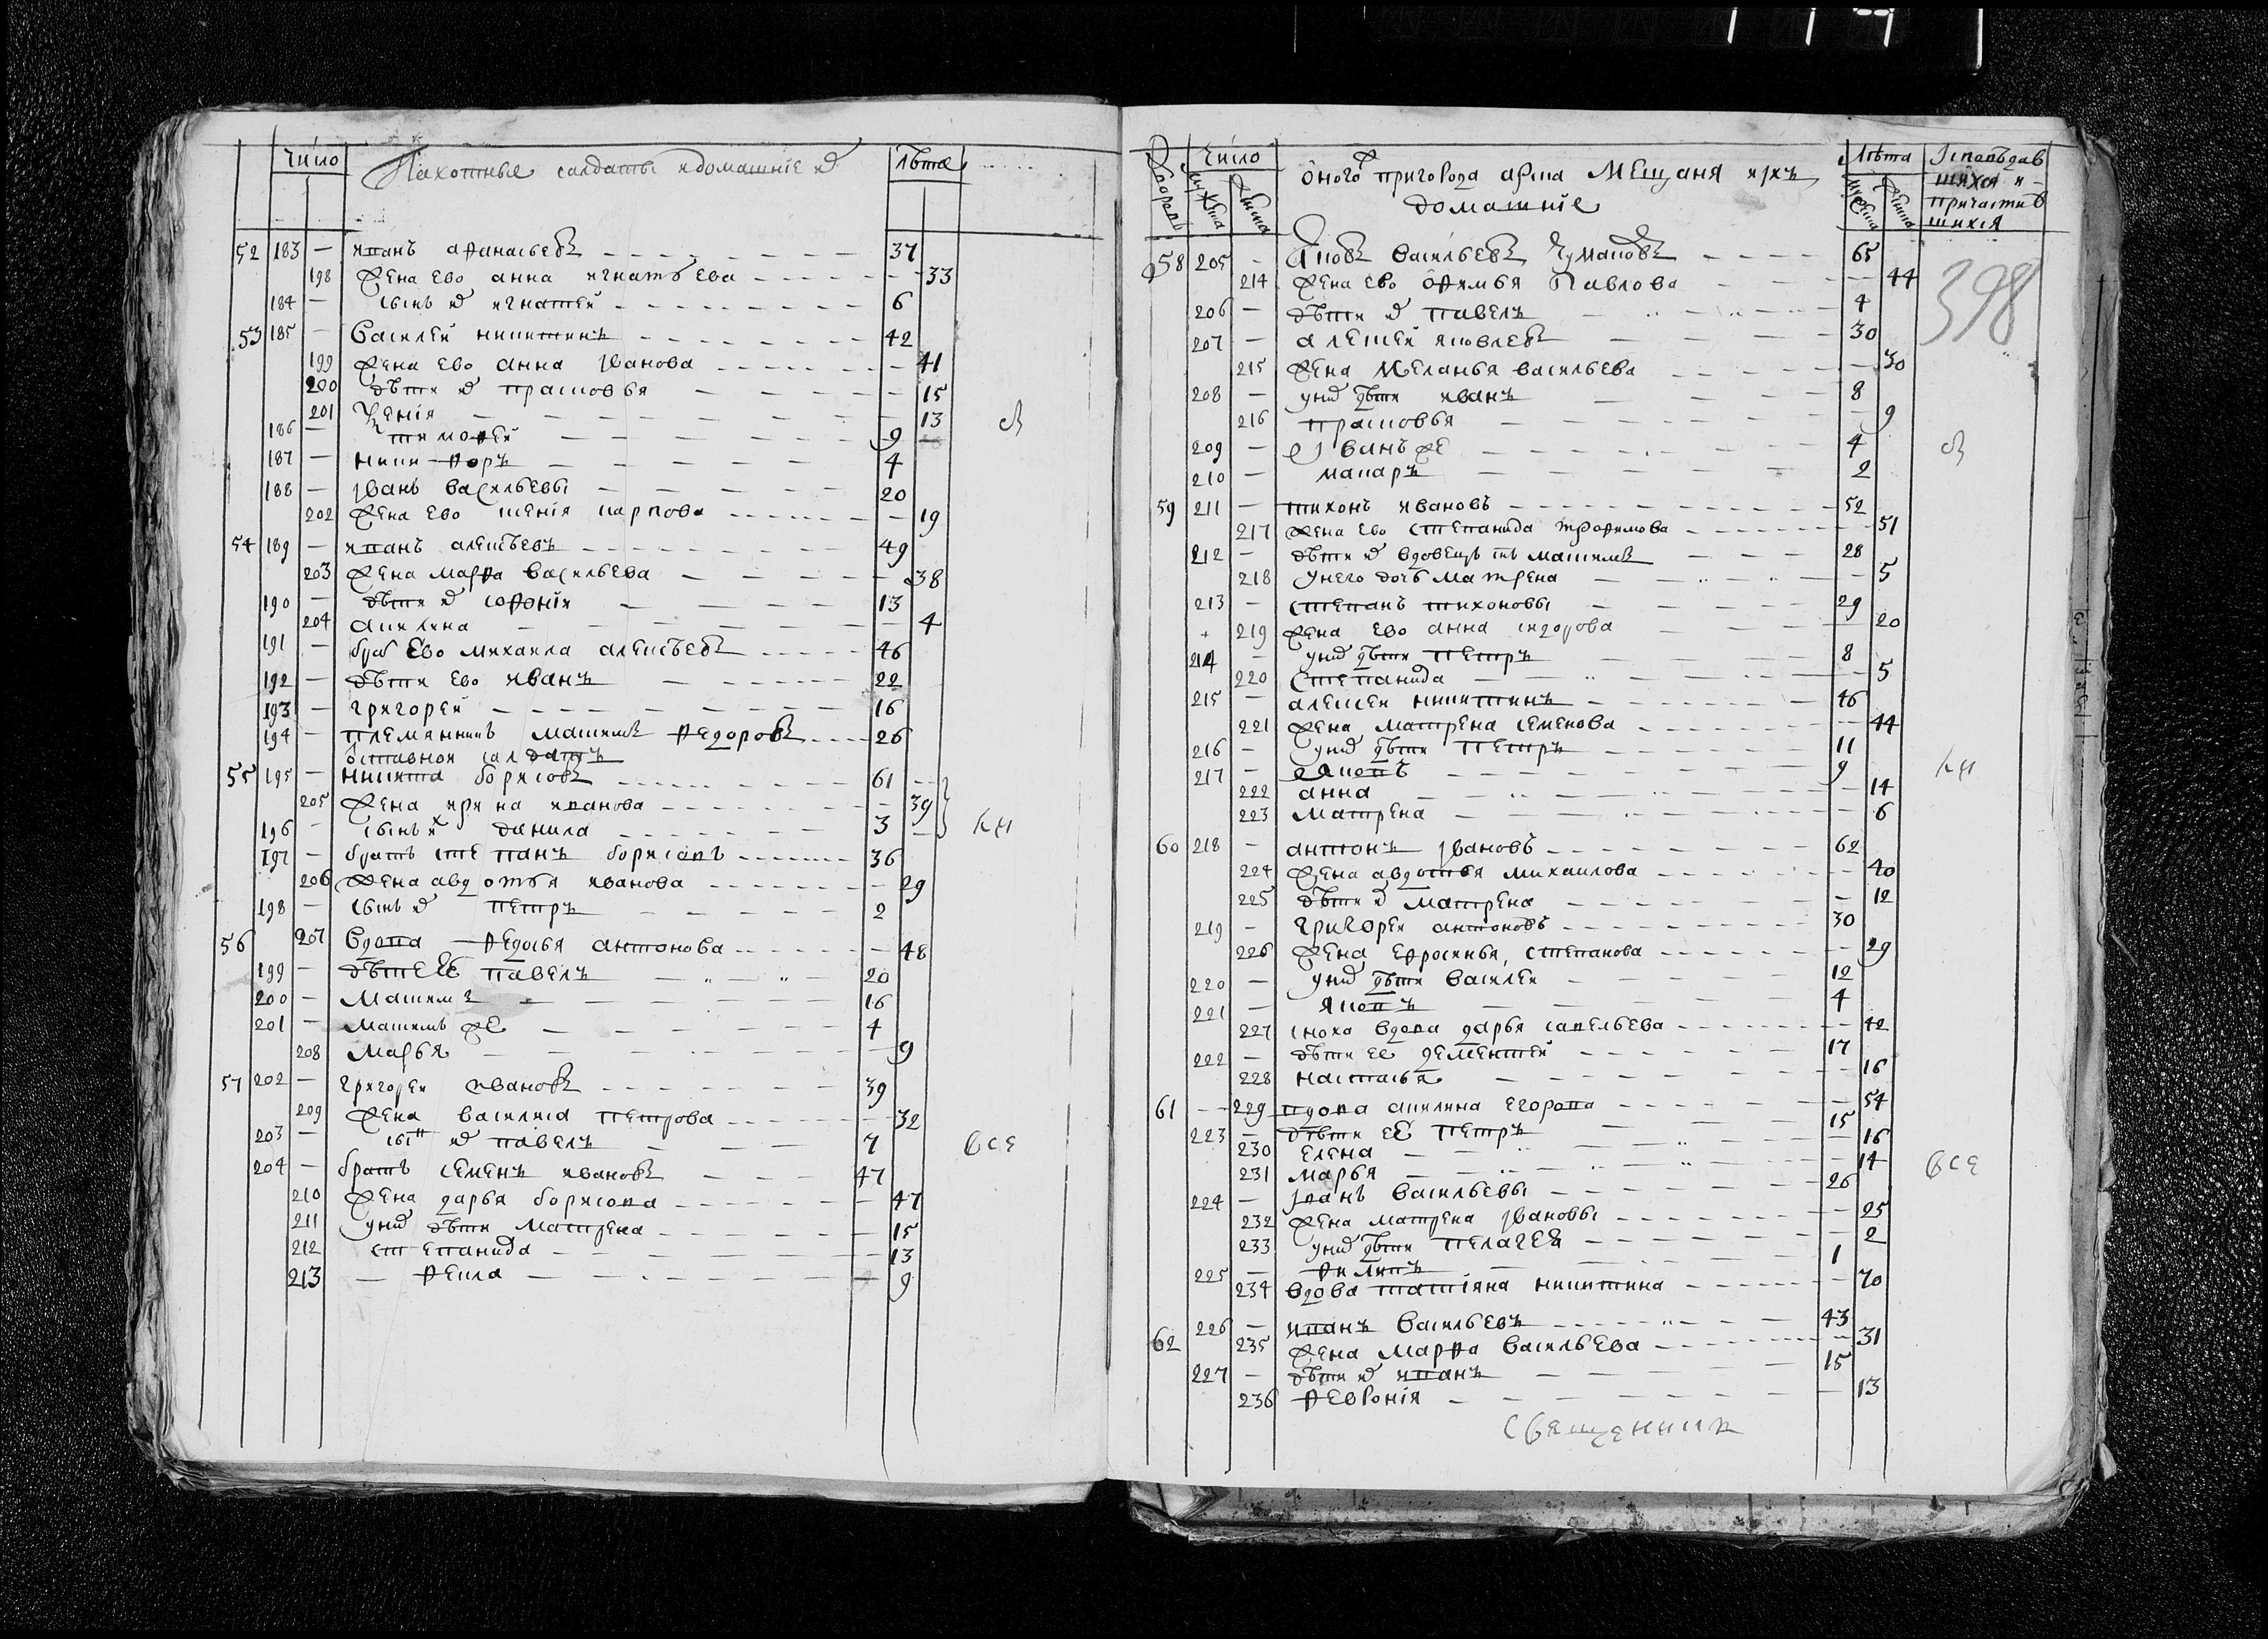 число Пахотныя салдаты и домашние их лета
52 183 — иванъ афанасьевъ 37
198 жена ево анна игнатьева 33
184 — сынъ их игнатей 6
53 185 — Василей никитинъ 42
199 жена ево анна иванова 41
200 дѣти их прасковья 15
201 ксенія 13
186 — тимофей 9
187 — никифоръ 4
188 — иванъ васильевы 20
202 жена ево ксенія карпова 19
54 189 — иванъ алексѣевъ 49
203 жена марфа васильева 38
190 — дѣти их софонія 13
204 акилина 4
191 — братъ ево михаила алексѣевъ 46
192 — дѣти ево иванъ 22
193 — григорей 16
194 — племянникъ максимъ федоровъ 26
отставной салдатъ
55 195 — никита борисовъ 61
205 жена ирина иванова 39
196 — сынъ их данила 3 кн
197 — братъ степанъ борисовъ 36
206 жена авдотья иванова 29
198 — сынъ их петръ 2
56 207 вдова федосья антонова 48
199 — дѣти ее павелъ 20
200 — максимъ 16
201 — максимъ же 4
208 марья 9
57 202 — григорей ивановъ 39
209 жена василиса петрова 32
203 — сынъ их павелъ 7 все
204 — братъ семенъ ивановъ 47
210 жена дарья борисова 47
211 у них дѣти матрена 15
212 степанида 13
213 — фекла 9
число оного пригорода арска мещаня и ихъ домашніе лѣта исповѣдав
шихся и
причастив
шихся
58 205 — яковъ васильевъ чумаковъ 65
214 жена ево офимья павлова 44 398
206 — дѣти их павелъ 4
207 — алексей яковлевъ 30
215 жена меланья васильева 30
208 — у них дѣти иванъ 8
216 прасковья 9
209 — иванъ же 4
210 — макаръ 2
59 211 — тихонъ ивановъ 52
217 жена ево степанида трофимова 51
212 — дѣти их вдовецъ максимъ 28
218 у него дочь матрена 5
213 — степанъ тихоновы 29
219 жена ево анна сидорова 20
214 — у них дѣти петръ 8
220 степанида 5
215 — алексей никитинъ 46
221 жена матрена семенова 44
216 — у них дѣти петръ 11
217 — яковъ 9 кн
222 анна 14
223 матрена 6
60 218 — антонъ ивановъ 62
224 жена авдотья михаилова 40
225 дѣти их матрена 12
219 — григорей антоновъ 30
226 жена ефросинья степанова 29
220 — у них дѣти василей 12
221 — яковъ 4
227 сноха вдова дарья савельева 42
222 — дѣти ее дементей 17
228 настасья 16
61 229 вдова акилина егорова 54
223 — дѣти ее петръ 15
230 елена 16
231 марья 14 все
224 — иванъ васильевы 26
232 жена матрена ивановы 25
233 у них дѣти пелагея 2
225 — филипъ 1
234 вдова татіяна никитина 70
62 226 — иванъ васильевъ 43
235 жена марфа васильева 31
227 — дѣти их иванъ 15
236 февронія 13
священникъ